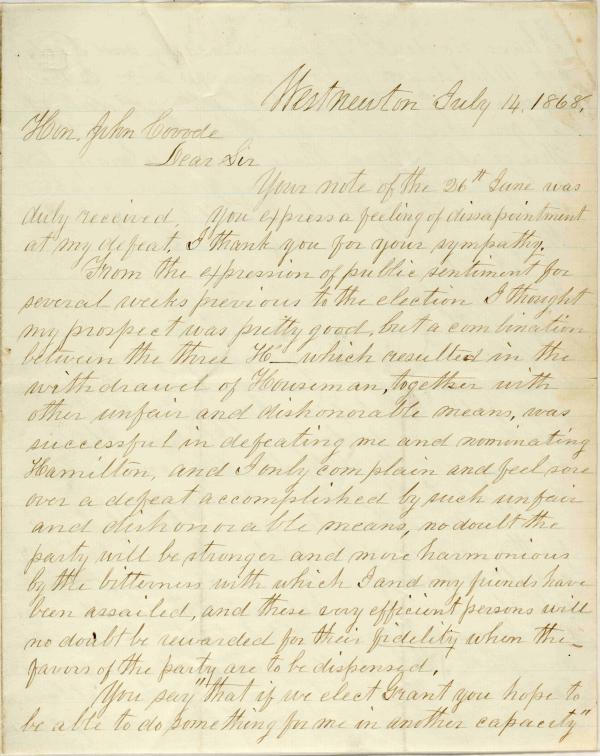 Westnewton July 14. 1868.
Hon. John Covode
Dear Sir
Your note of the 26th June was
duly received, you express a feeling of dissapointment
at my defeat. I thank you for your sympathy.
From the expression of public sentiment for
several weeks previous to the election I thought
my prospect was pretty good, but a combination
between the three H— which resulted in the
withdrawel of Houseman, together with
other unfair and dishonorable means, was
successful in defeating me and nominating
Hamilton, and I only complain and feel sore
over a defeat accomplished by such unfair
and dishonorable means, no doubt the
party will be stronger and more harmonious
by the bitterness with which I and my friends have
been assailed, and these very efficient persons will
no doubt be rewarded for their fidelity when the
favors of the party are to be dispensed.
You say "that if we elect Grant you hope to
be able to do something for me in another capacity"